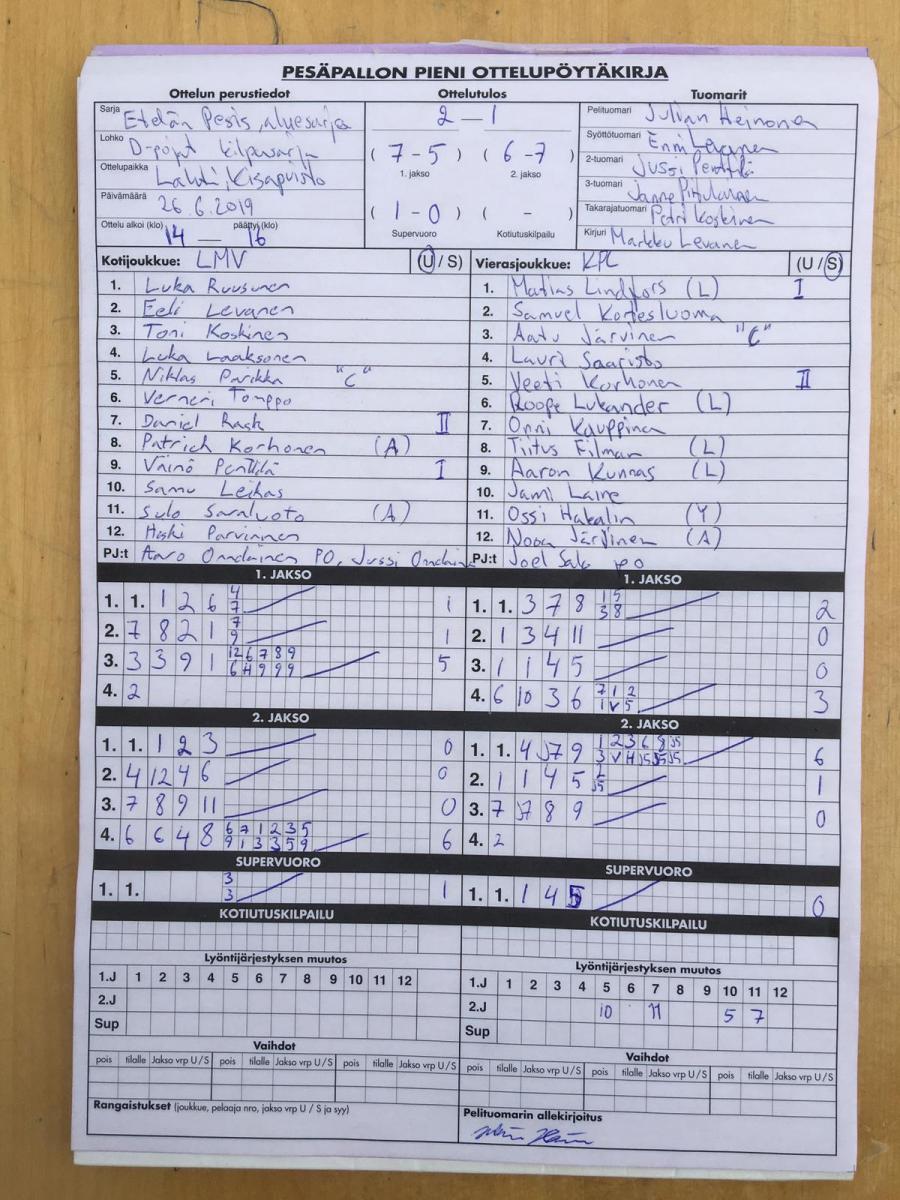 PESÄPALLON PIENI OTTELUPÖYTÄKIRJA
Ottelun perustiedot
Sarja Etelän Pesis, aluesarja
Lohko D-pojat kilpasarja
Ottelupaikka Lahti, Kisapuisto
Päivämäärä 26.6.2019
Ottelu alkoi (klo) 14 — päättyi (klo) 16
Ottelutulos
2 — 1
( 7 - 5 ) ( 6 - 7 )
1. jakso 2. jakso
( 1 - 0 ) ( - )
Supervuoro Kotiutuskilpailu
Tuomarit
Pelituomari Julian Heinonen
Syöttötuomari Enni Levanen
2-tuomari Jussi Penttilä
3-tuomari Janne
Takarajatuomari Petri Koskinen
Kirjuri Markku Levanen
Kotijoukkue: LMV (U / S)
1. Luka Ruusunen
2. Eeli Levanen
3. Toni Koskinen
4. Luka Laaksonen
5. Niklas Parikka "C"
6. Verneri Tomppo
7. Daniel Rask II
8. Patrick Korhonen (A)
9. Väinö Penttilä I
10. Samu Leikas
11. Sulo Saraluoto (A)
12. Heski Parvinnen
PJ:t Aaro Ondäinen PO, Jussi
Vierasjoukkue: KPL (U / S)
1. Matias Lindfors (L) I
2. Samuel Kortesluoma
3. Aatu Järvinen "C"
4. Lauri Saaristo
5. Veeti Korhonen II
6. Roope Lukander (L)
7. Onni Kauppinen
8. Tiitus Filman (L)
9. Aaron Kunnas (L)
10. Jami Laine
11. Ossi Hakalin (Y)
12. Nooa Järvinen (A)
PJ:t Joel Salo PO
1. JAKSO
1. 1. 1 2 6 4 1
7
2. 7 8 2 1 7 1
9
3. 3 3 9 1 12 6 7 8 9 5
6 H 9 9 9
4. 2
2. JAKSO
1. 1. 1 2 3 0
2. 4 12 4 6 0
3. 7 8 9 11 0
4. 6 6 4 8 6 7 1 2 3 5 6
9 1 3 3 5 9
SUPERVUORO
1. 1. 3 1
3
KOTIUTUSKILPAILU
Lyöntijärjestyksen muutos
1.J 1 2 3 4 5 6 7 8 9 10 11 12
2.J
Sup
Vaihdot
pois tilalle Jakso vrp U/S pois tilalle Jakso vrp U/S pois tilalle Jakso vrp U/S
Rangaistukset (joukkue, pelaaja nro, jakso vrp U / S ja syy)
1. JAKSO
1. 1. 3 7 8 1 5 2
3 8
2. 1 3 4 11 0
3. 1 1 4 5 0
4. 6 10 3 6 7 1 2 3
1 V 5
2. JAKSO
1. 1. 4 J7 9 1 2 3 6 8 J5 6
3 V H J5 J5 J5
2. 1 1 4 5 2 1
J5
3. 7 J7 8 9 0
4. 2
SUPERVUORO
1. 1. 1 4 5 0
KOTIUTUSKILPAILU
Lyöntijärjestyksen muutos
1.J 1 2 3 4 5 6 7 8 9 10 11 12
2.J 10 11 5 7
Sup
Vaihdot
pois tilalle Jakso vrp U/S pois tilalle Jakso vrp U/S pois tilalle Jakso vrp U/S
Pelituomarin allekirjoitus